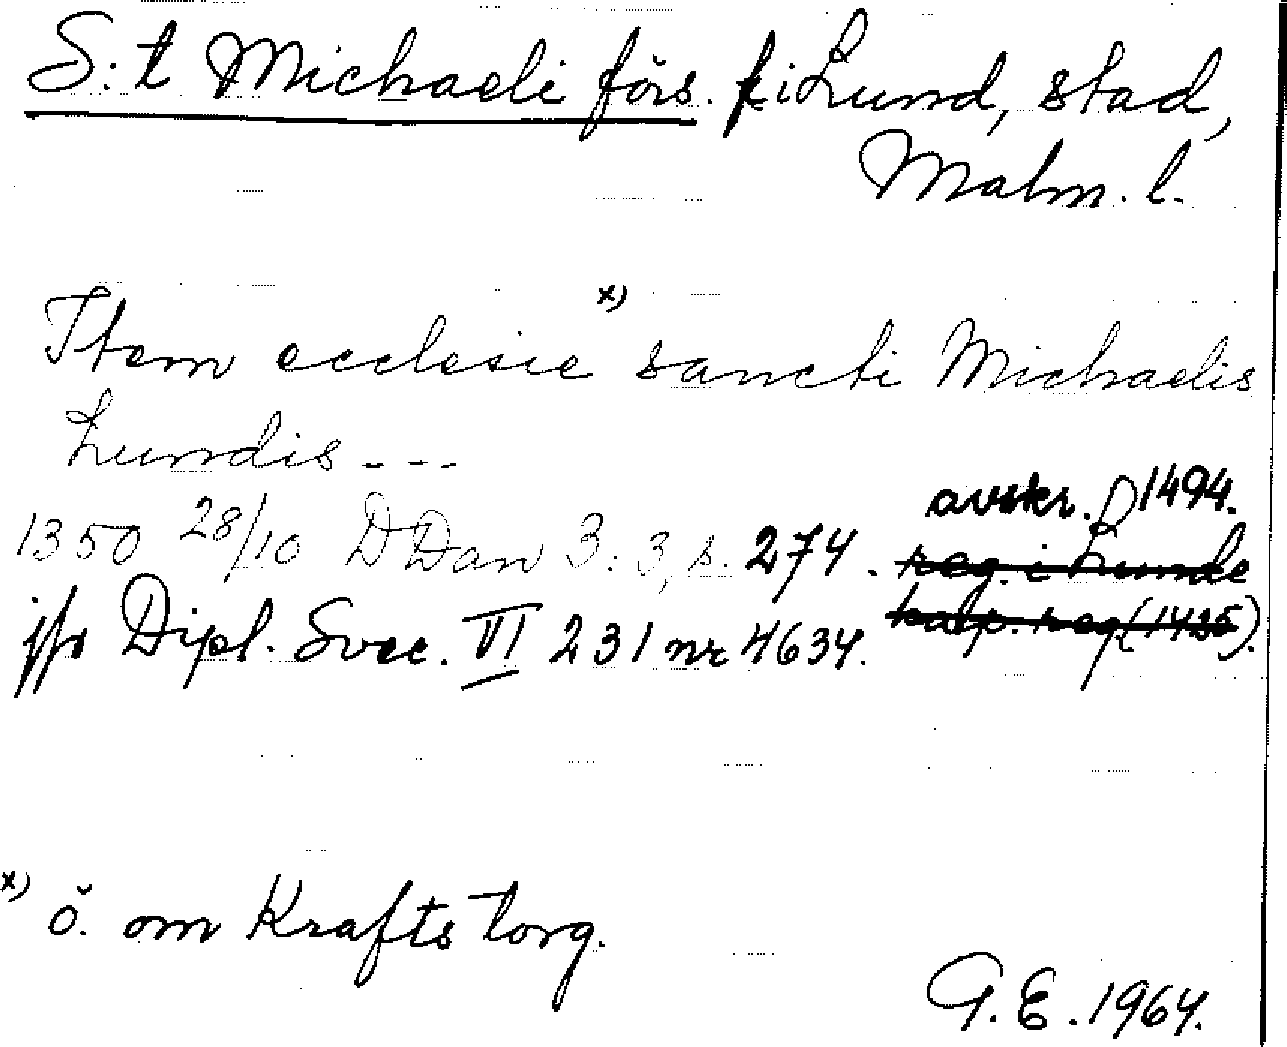 S:t Michaeli förs. f. i Lund, stad,
Malm. l.
Item ecclesie x) sancti Michaelis
Lundis - - -
1350 28/10 DDan 3:3, s. 274. avskr. 1494.
reg. i Lunde
kap. reg (1425).
jfr Dipl. Svec. VI 231 nr 4634.
x) ö. om Krafts torg.
G.E. 1964.